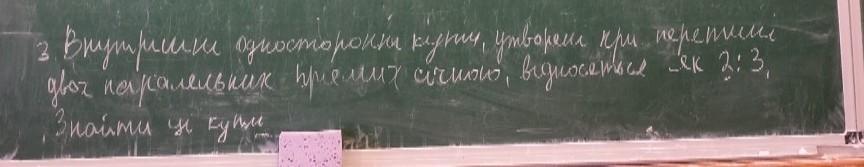 3. Внутрішні односторонні кути, утворені при перетині
двох паралельних прямих січною, відносяться як 2:3.
Знайти ці кути